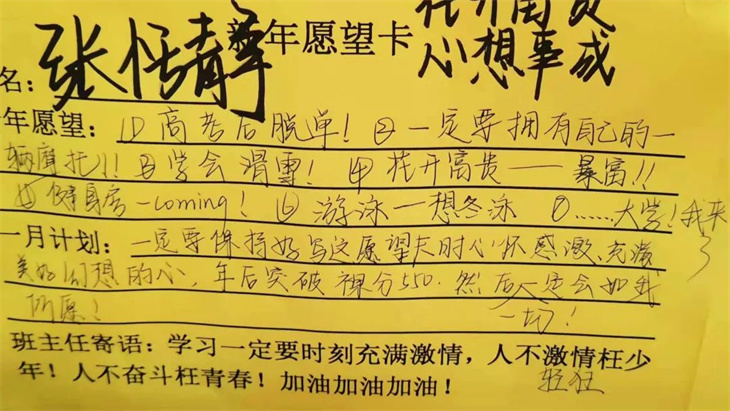 新年愿望卡
花开富贵
心想事成
名：张恬静
年愿望：①高考后脱单！②一定要拥有自己的一
辆摩托！！③学会滑雪！④花开富贵——暴富！！
⑤健身房-coming！⑥游泳—想冬泳 ⑦......大学！我来
了
一月计划：一定要保持好写这愿望卡时心怀感激、充满
美好幻想的心，年后突破裸分550. 然后一定会如我
所愿！一切！
班主任寄语：学习一定要时刻充满激情，人不激情枉少
年！人不奋斗枉青春！加油加油加油！
轻狂